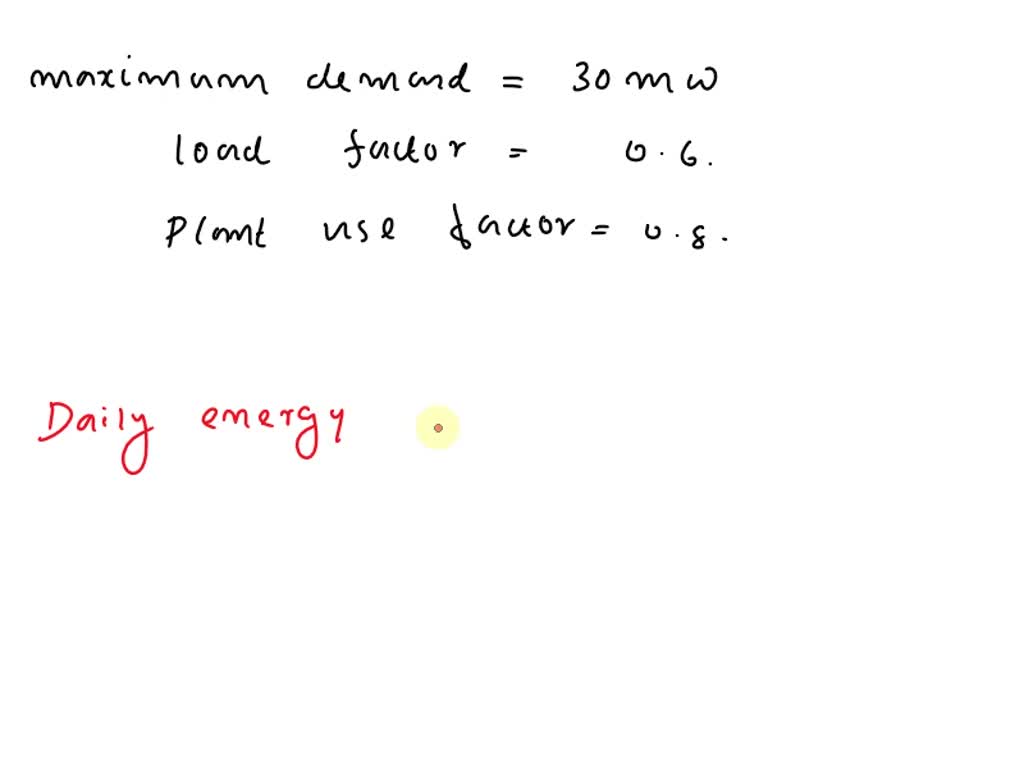 maximum demand = 30 mw
load factor = 0.6.
Plant use factor = 0.8.
Daily energy